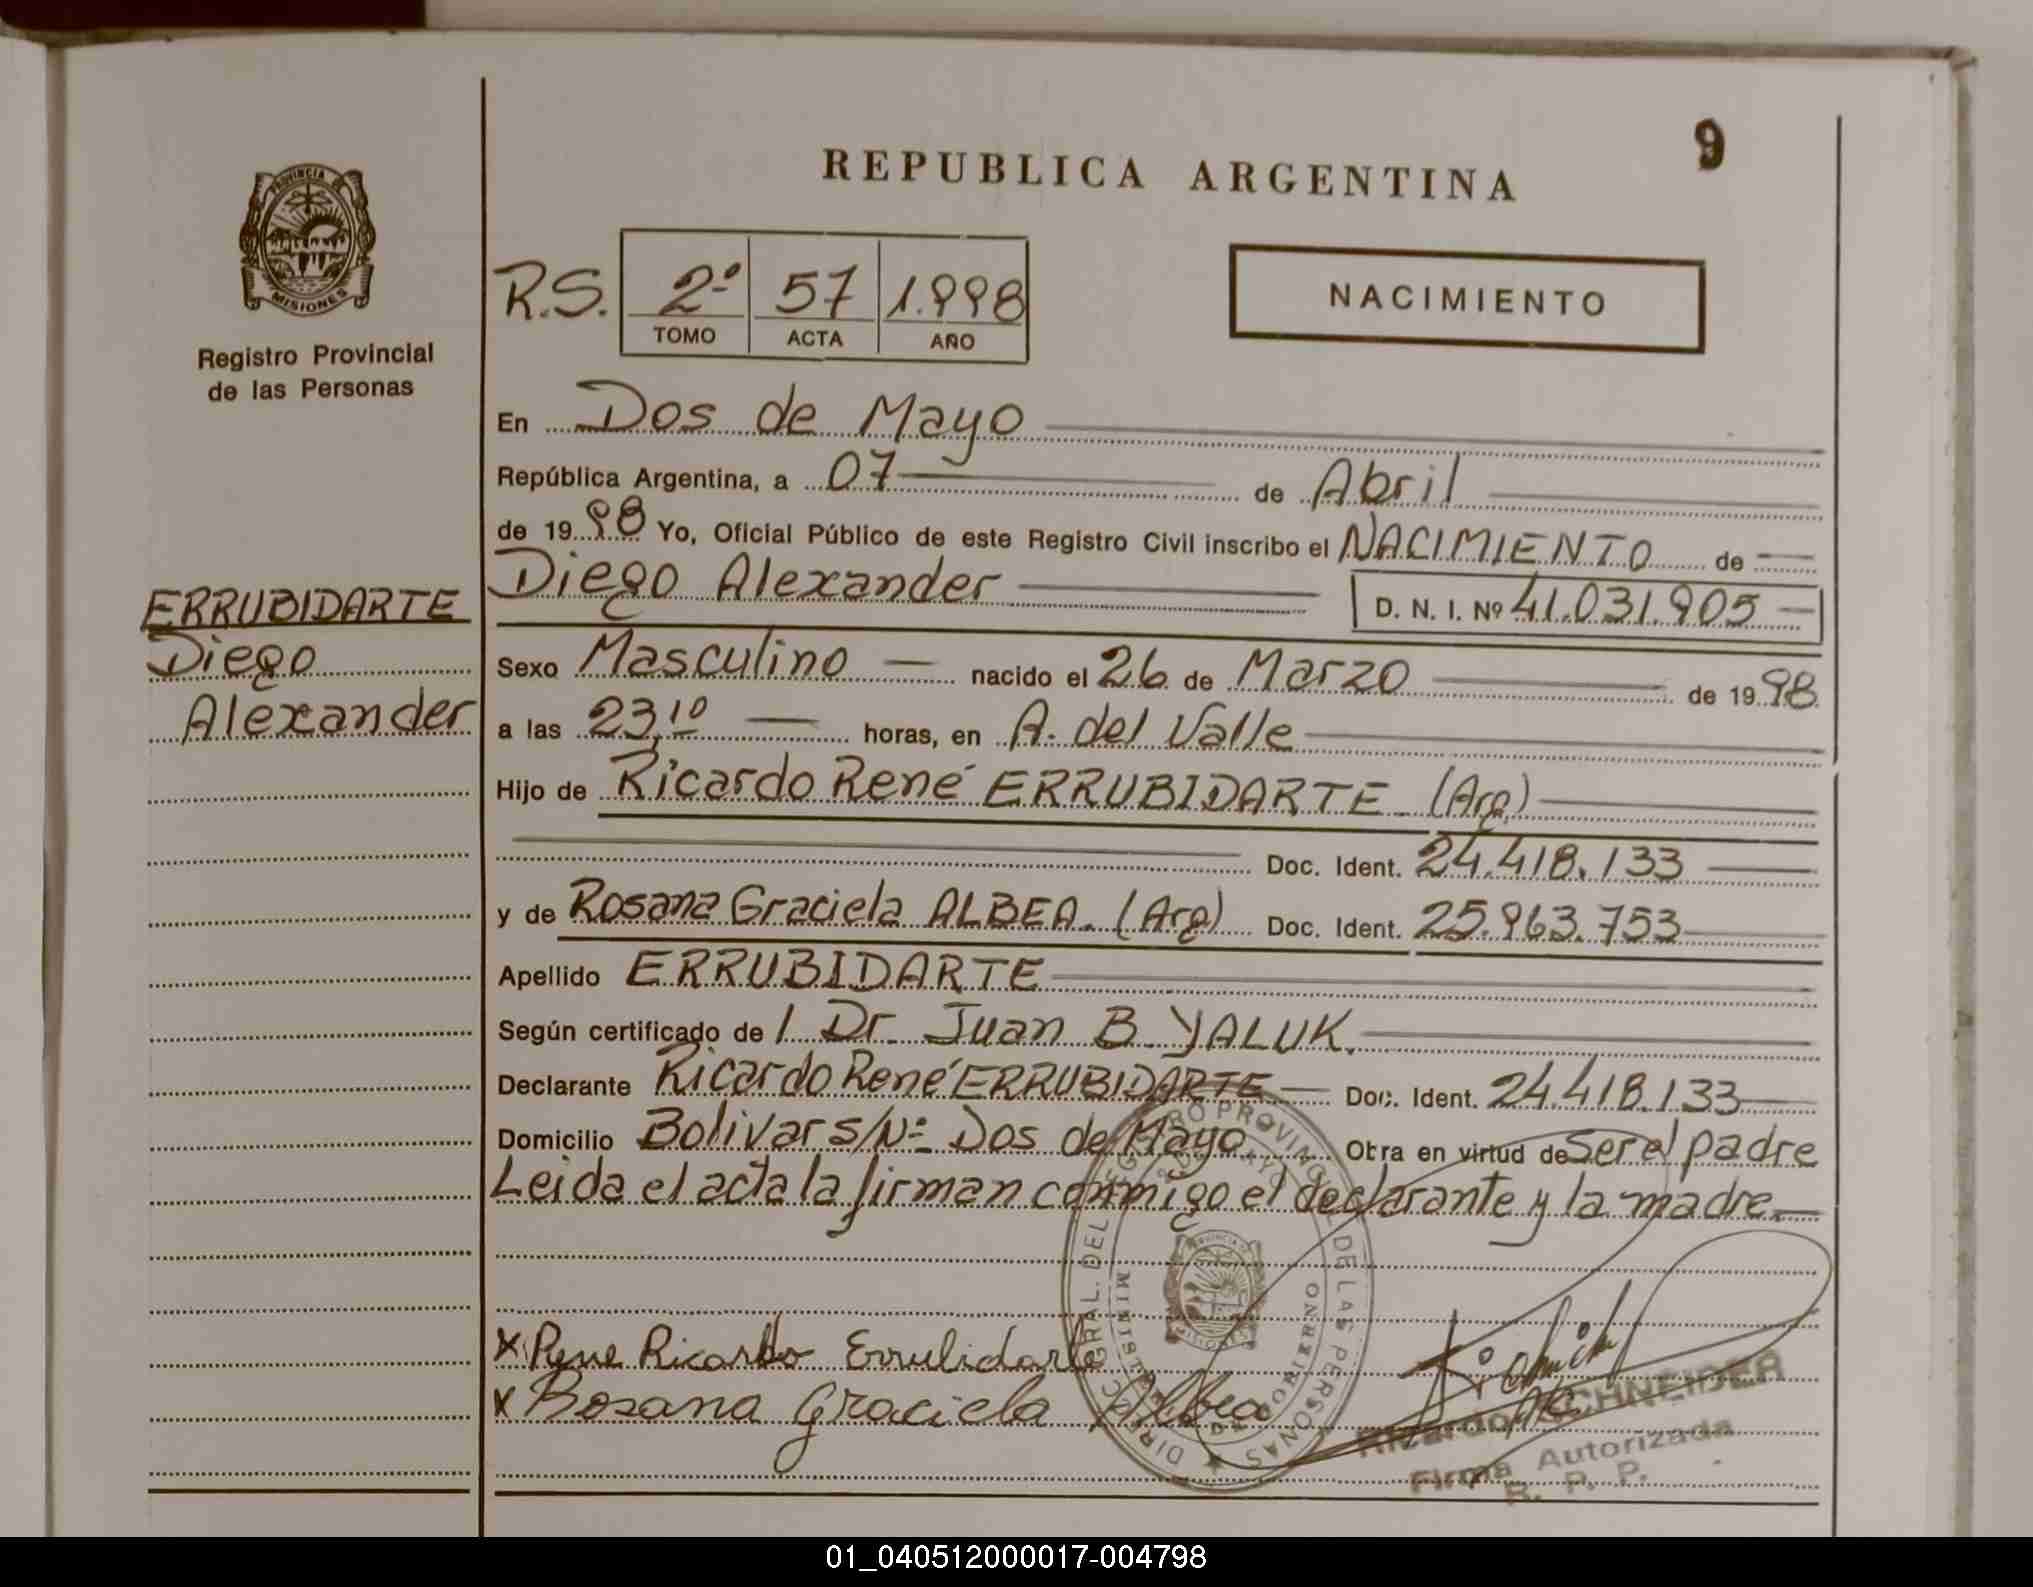 9
REPUBLICA ARGENTINA
PROVINCIA DE
MISIONES
Registro Provincial
de las Personas
R.S. 2º 57 1.998
TOMO ACTA AÑO
NACIMIENTO
En Dos de Mayo
República Argentina, a 07 de Abril
de 1998 Yo, Oficial Público de este Registro Civil inscribo el NACIMIENTO de
Diego Alexander D. N. I. Nº 41.031.905
ERRUBIDARTE
Diego
Alexander
Sexo Masculino nacido el 26 de Marzo de 1998
a las 23,10 horas, en A. del Valle
Hijo de Ricardo René ERRUBIDARTE (Arg)
Doc. Ident. 24.418.133
y de Rosana Graciela ALBEA. (Arg) Doc. Ident. 25.963.753
Apellido ERRUBIDARTE
Según certificado de l Dr. Juan B. YALUK.
Declarante Ricardo René ERRUBIDARTE Doc. Ident. 24.418.133
Domicilio Bolivar s/Nº Dos de Mayo Obra en virtud de Ser el padre
Leida el acta la firman conmigo el declarante y la madre.
x Rene Ricardo Errubidarte
x Rosana Graciela Albea
DIREC. GRAL. DEL REGISTRO PROVINCIAL DE LAS PERSONAS
MINISTERIO DE GOBIERNO
PROVINCIA DE
MISIONES
Ricardo SCHNEIDER
Firma Autorizada
R. P. P.
01_040512000017-004798